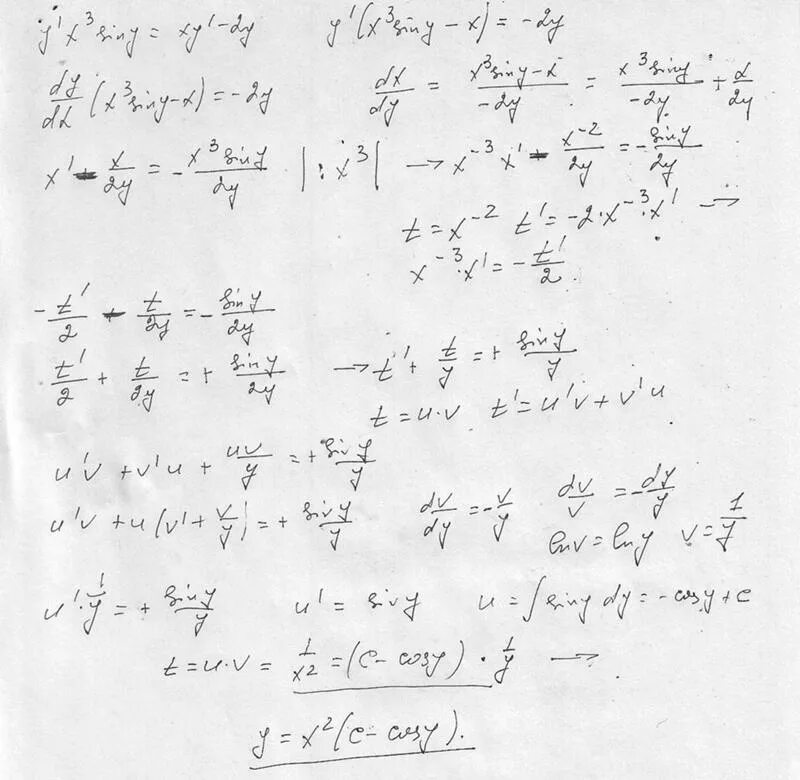 y' x³ sin y = xy' - 2y    y'(x³ sin y - x) = -2y
dy/dx (x³ sin y - x) = -2y    dx/dy = (x³ sin y - x)/(-2y) = (x³ sin y)/(-2y) + x/2y
x' - x/2y = -(x³ sin y)/2y  | : x³ |  → x⁻³ x' - x⁻²/2y = -sin y/2y
t = x⁻²  t' = -2·x⁻³·x' →
x⁻³·x' = -t'/2
-t'/2 - t/2y = -sin y/2y
t'/2 + t/2y = + sin y/2y  → t' + t/y = + sin y/y
t = u·v  t' = u'v + v'u
u'v + v'u + uv/y = + sin y/y
u'v + u(v' + v/y) = + sin y/y    dv/dy = -v/y    dv/v = -dy/y
ln v = ln y  v = 1/y
u'·1/y = + sin y/y    u' = sin y    u = ∫ sin y dy = -cos y + c
t = u·v = 1/x² = (c - cos y)·1/y →
y = x²(c - cos y).